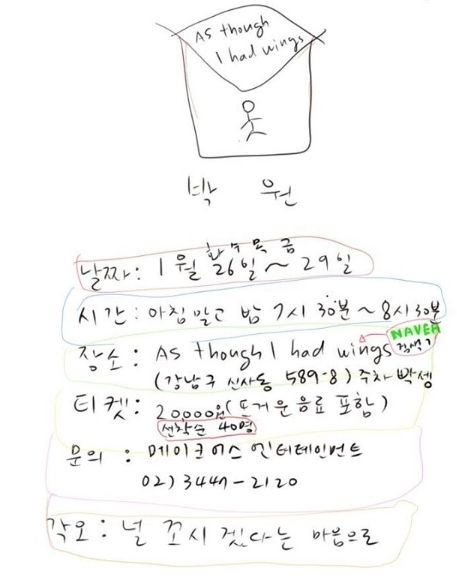 As though
I had wings
박 원
화 수 목 금
날짜: 1월 26일~29일
시간: 아침말고 밤 7시 30분~8시 30분
NAVER
장소: As though I had wings 검색!
(강남구 신사동 589-8) 주차 빡셈
티켓: 20000원(뜨거운음료 포함)
선착순 40명
문의: 메이크어스 엔터테인먼트
02) 3447-2120
각오: 널 꼬시겠다는 마음으로